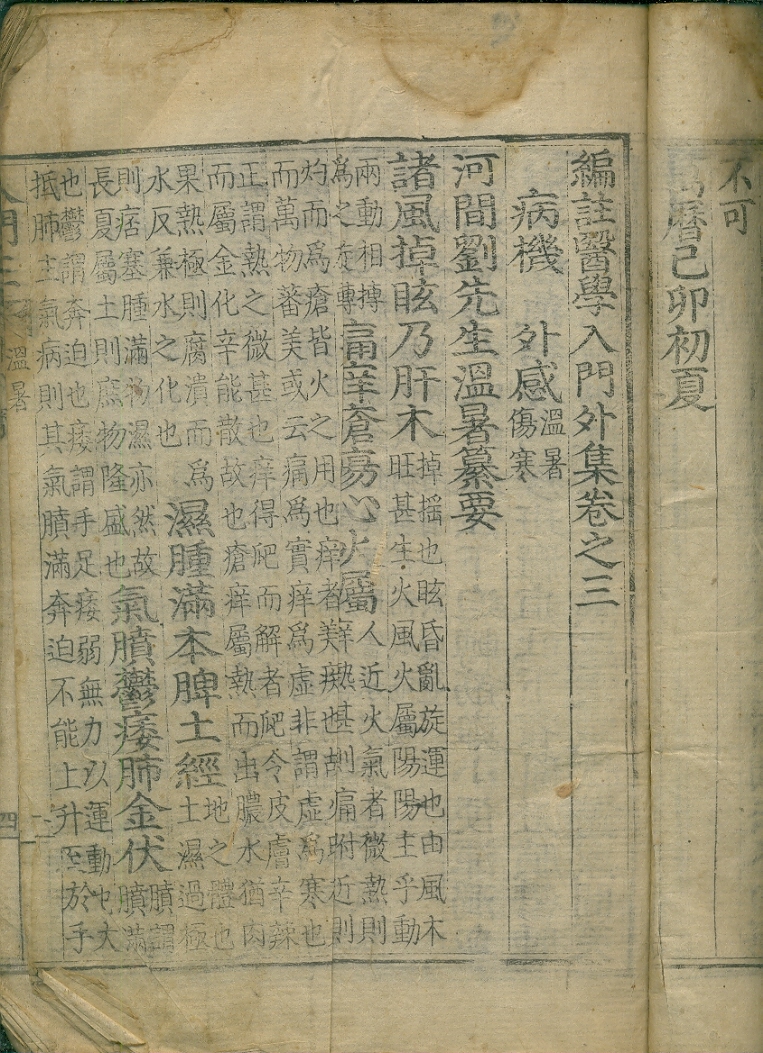 不可
萬曆己卯初夏
編註醫學入門外集卷之三
病機 外感 溫暑 傷寒
河間劉先生溫暑纂要
諸風掉眩乃肝木 掉搖也眩昏亂旋運也由風木
旺甚生火風火屬陽陽主乎動
兩動相搏
爲之旋轉
痛痒瘡瘍心火屬 人近火氣者微熱則
痒熱甚則痛附近則
灼而爲瘡皆火之用也痒者美疾也故
而萬物蕃美或云痛爲實痒爲虛非謂虛爲寒也
正謂熱之微甚也痒得爬而解者爬令皮膚辛辣
而屬金化辛能散故也瘡痒屬熱而出膿水猶肉
果熱極則腐潰而爲
水反兼水之化也
濕腫滿本脾土經 地之體也
土濕過極
則痞塞腫滿物濕亦然故
長夏屬土則庶物隆盛也
氣膹鬱痿肺金伏 膹謂
膹滿
也鬱謂奔迫也痿謂手足痿弱無力以運動也大
抵肺主氣病則其氣膹滿奔迫不能上升至於手
入門三
溫暑
四